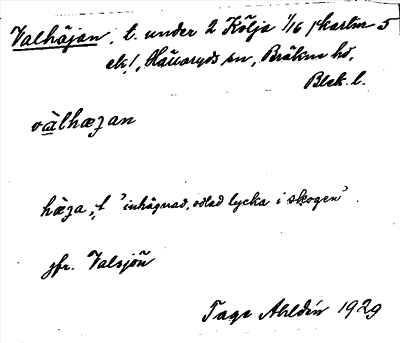 Valhäjan, t. under 2 Kölja 1/16 skattm 5
ek!, Hällaryds sn, Bräkne hd,
Blek. l.
vàlhæȝan
hæ̀ȝa, f 'inhägnad, odlad lycka i skogen'.
jfr. Valsjön
Tage Ahldén 1929